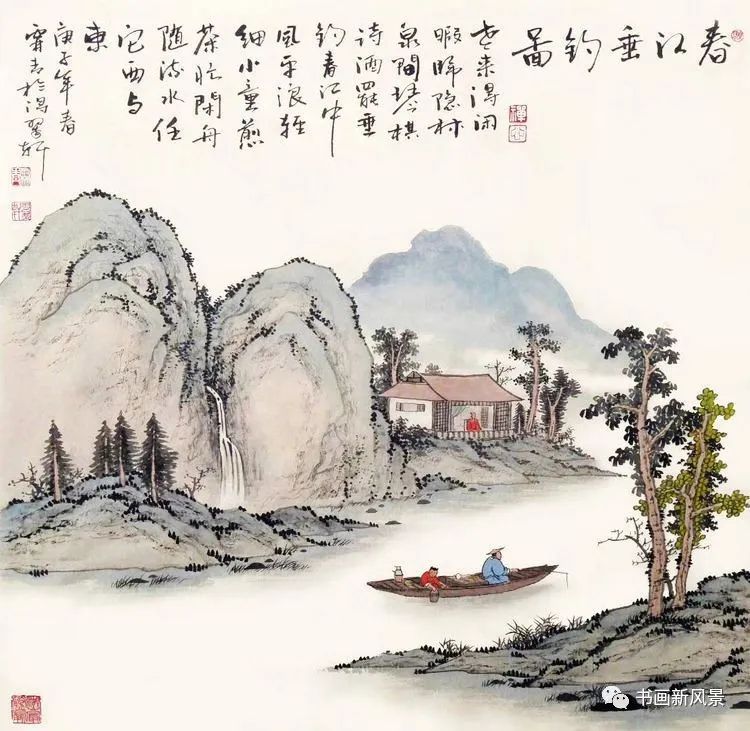 春江垂釣啚
老来得闲
暇睇隐林
泉間琴棋
詩酒罷垂
釣春江中
風平浪輕
细小童煎
茶忙閑舟
随流水任
它西与
東
庚子年春
於翠軒
书画新风景